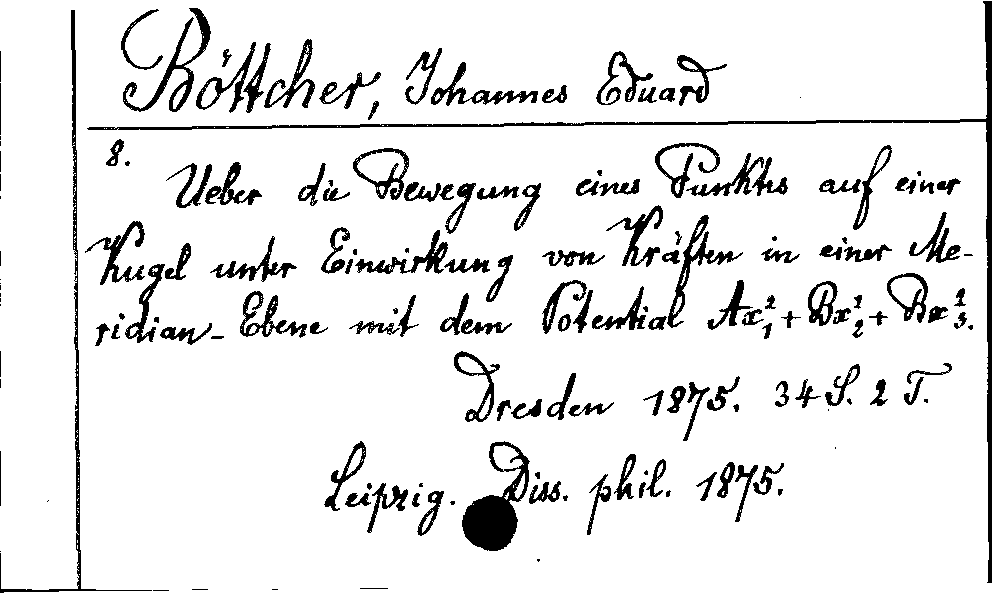 Böttcher, Johannes Eduard
8.
Ueber die Bewegung eines Punktes auf einer
Kugel unter Einwirkung von Kräften in einer Me-
ridian-Ebene mit dem Potential Ax₁²+Bx₂²+Bx₃².
Dresden 1875. 34 S. 2 T.
Leipzig. Diss. phil. 1875.